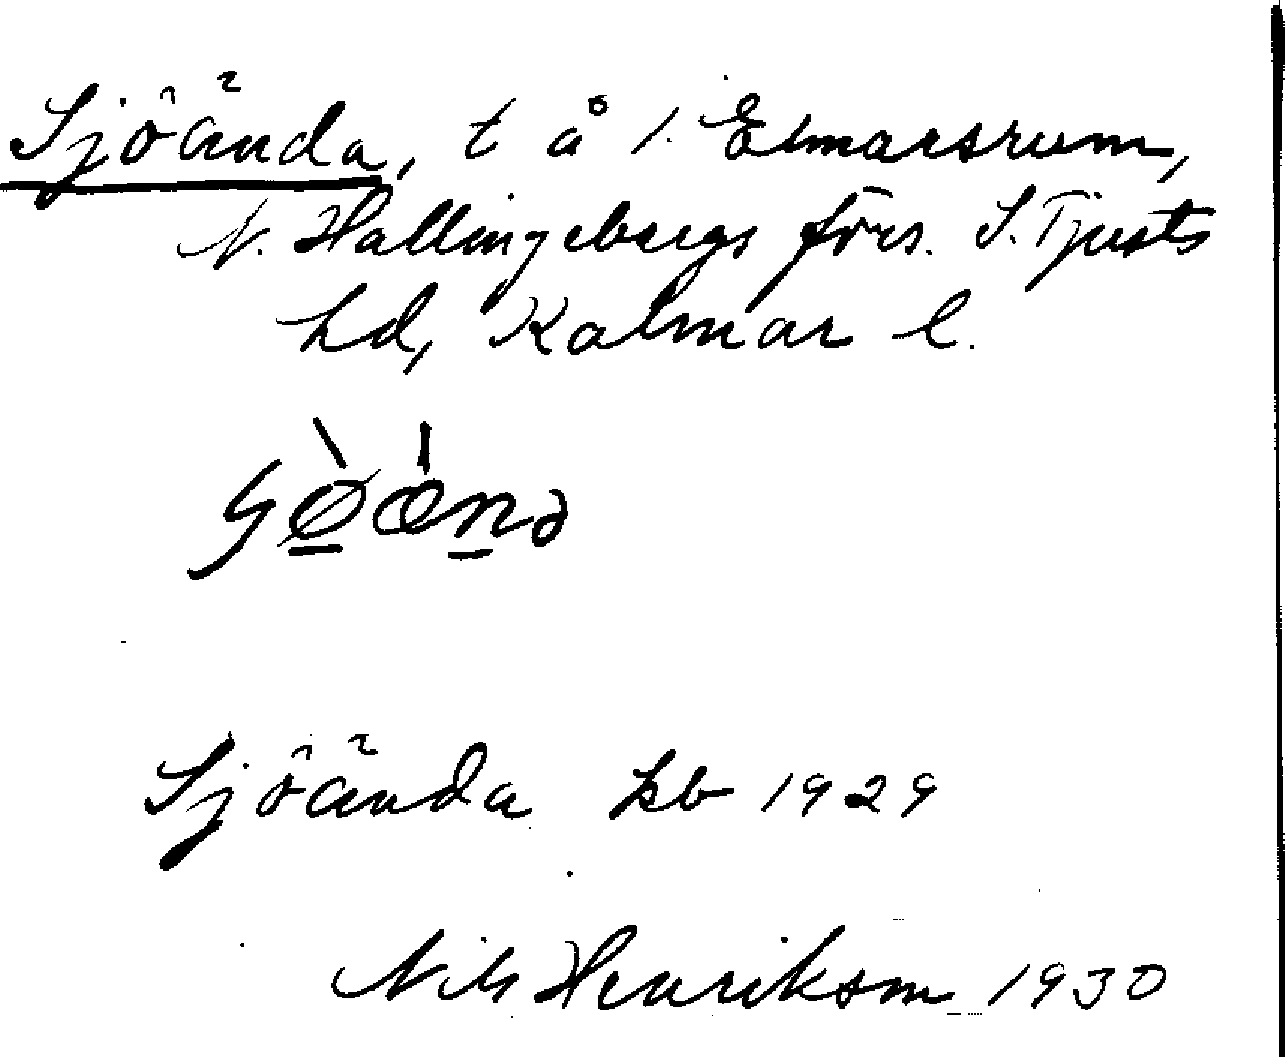 Sjöända, t å 1. Elmarsrum,
N. Hallingebergs förs. S. Tjusts
hd, Kalmar l.
Sjöända kb 1929
Nils Henrikson 1930